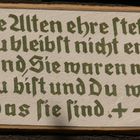 e Alten ehre stet
u bleibst nicht en
nd Sie waren n
u bist und Du w
as sie sind.